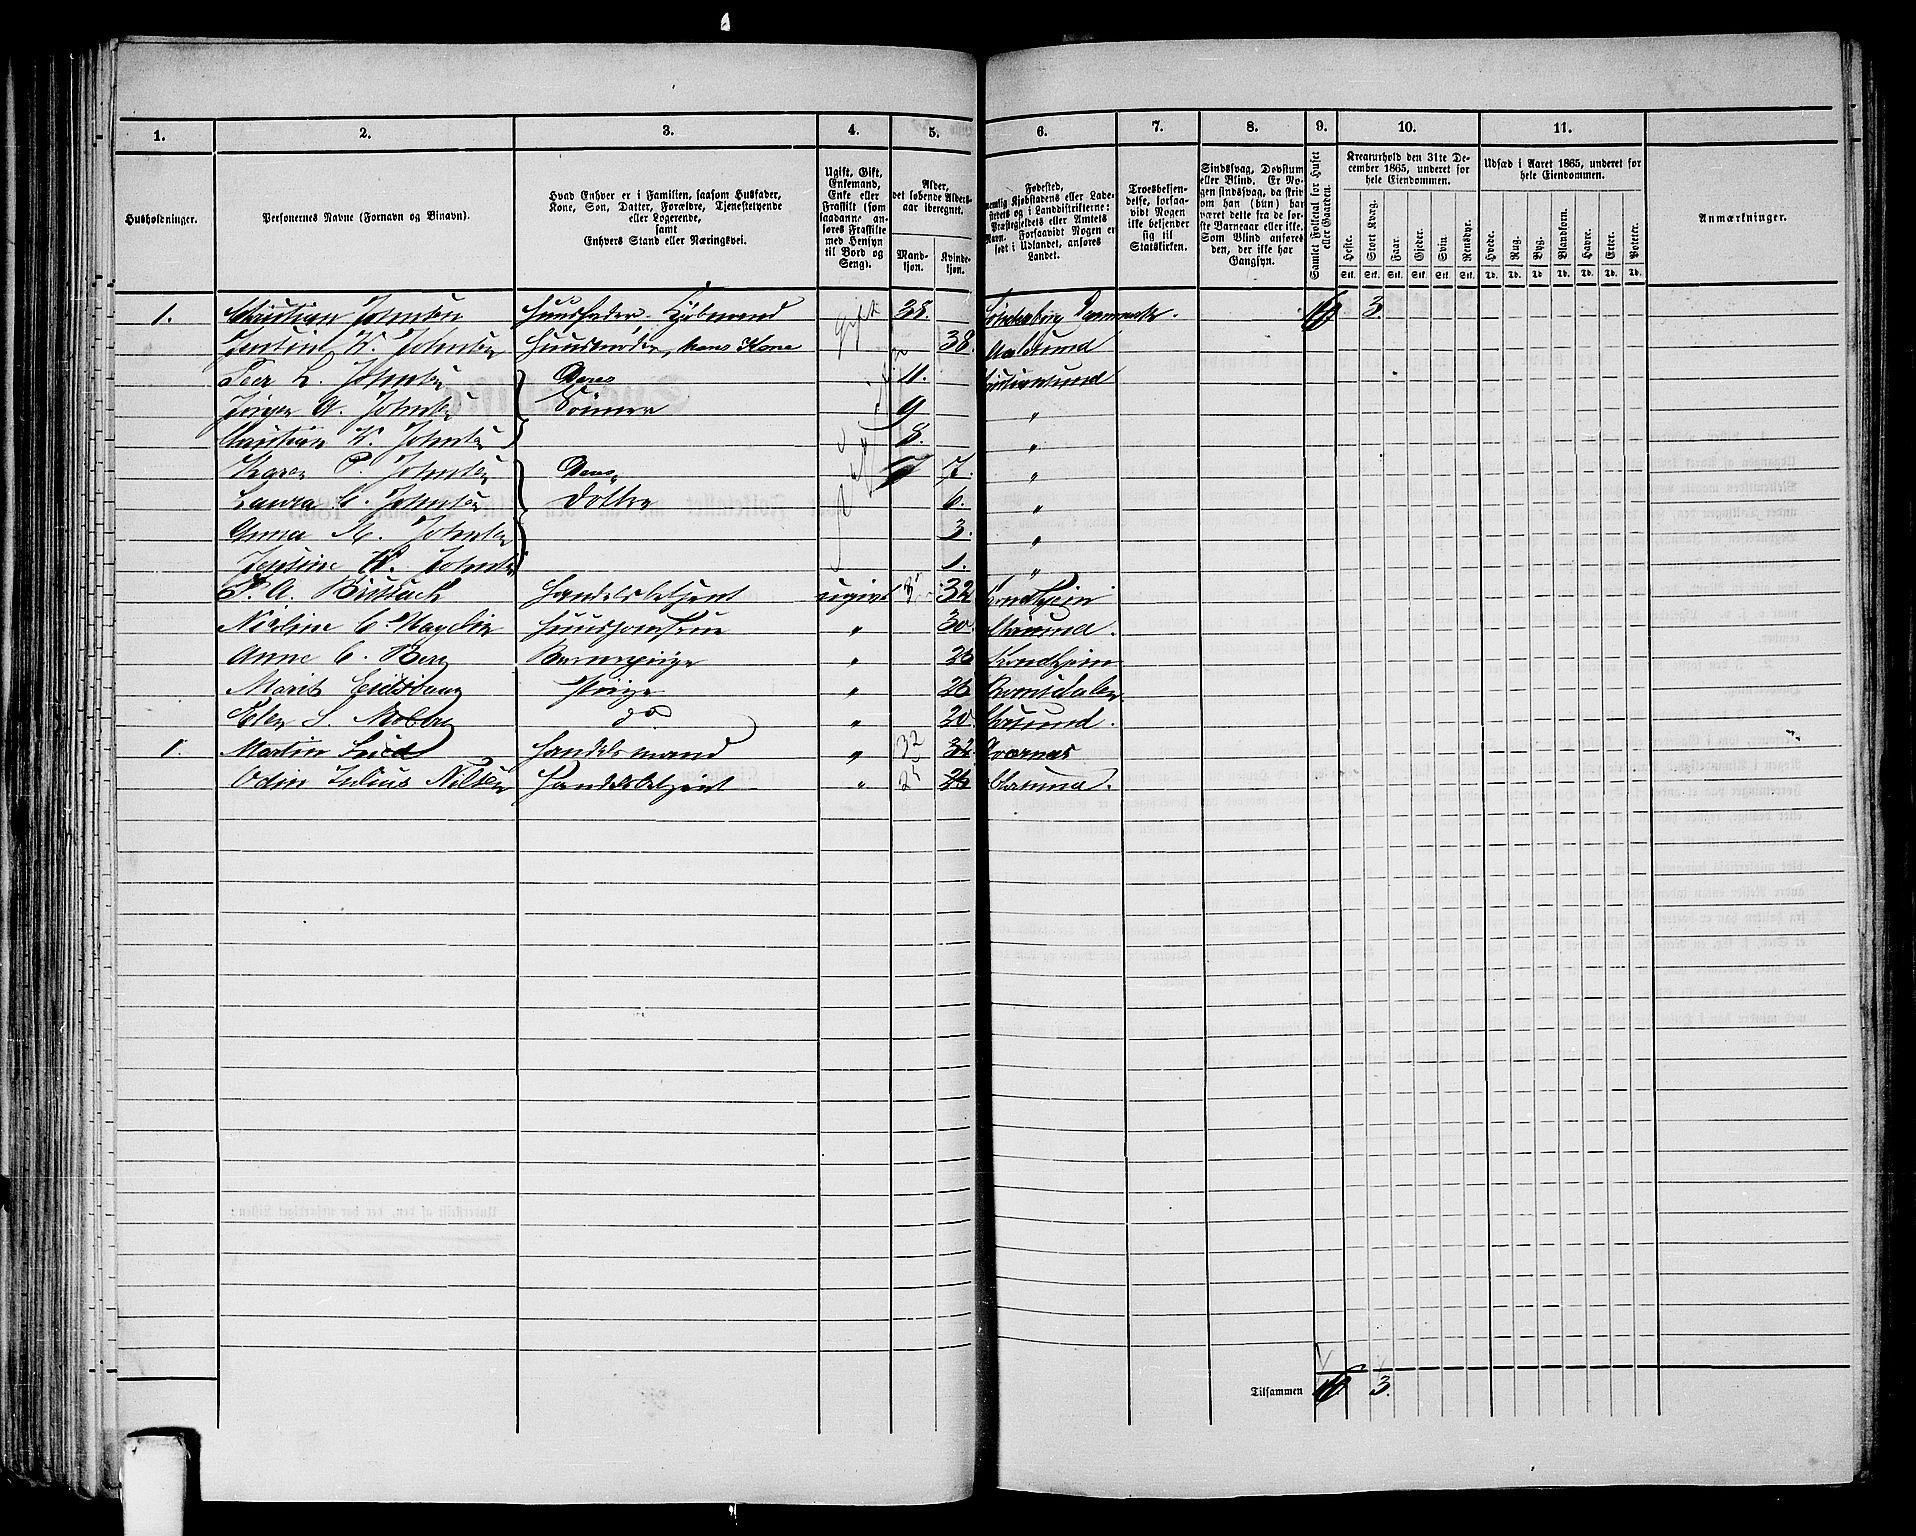 1. 2. 3. 4. 5. 6. 7. 8. 9. 10. 11.
Husholdninger.
Personernes Navne (Fornavn og Binavn).
Hvad Enhver er i Familien, saasom Husfader,
Kone, Søn, Datter, Forældre, Tjenestetyende
eller Logerende,
samt
Enhvers Stand eller Næringsvei.
Ugift, Gift,
Enkemand,
Enke eller
Fraskilt (som
saadanne an-
føres Fraskilte
med Hensyn
til Bord og
Seng).
Alder,
det løbende Alders-
aar iberegnet.
Mand-
kjøn.
Kvinde-
kjøn.
Fødested,
nemlig Kjøbstadens eller Lade-
stedets og i Landdistrikterne:
Præstegjeldets eller Amtets
Navn. Forsaavidt Nogen er
født i Udlandet, anføres
Landet.
Troesbekjen-
delse, forsaa-
vidt Nogen
ikke bekjender
sig til
Statskirken.
Sindssvag, Døvstum
eller Blind. Er No-
gen sindssvag, da skriv
om han (hun) har
været dette fra de før-
ste Barneaar eller ikke.
Som Blind anføres
den, der ikke har
Gangsyn.
Samlet Folketal for Huset
eller Gaarden.
Kreaturhold den 31te De-
cember 1865, underet for
hele Eiendommen.
Heste. Stort Kvæg. Faar. Gjeder. Svin. Rensdyr.
Stk. Stk. Stk. Stk. Stk. Stk.
Udsæd i Aaret 1865, underet for
hele Eiendommen.
Hvede. Rug. Byg. Blandkorn. Havre. Erter. Poteter.
Td. Td. Td. Td. Td. Td. Td.
Anmærkninger.
1. Christian Johnsen Huusfader. Kjøbmand gift 38. Sønderborg Danmark. 16 3.
K. Johnsen Huusmoder, hans Kone 38. Aalesund
Peer L. Johnsen Deres 11. Christiansund
Jørgen A. Johnsen Sønner 9 "
Christian K. Johnsen 8. "
Karen P. Johnsen Deres 7. "
Laura C. Johnsen Døttre 6. "
Anna M. Johnsen 3. "
Jensine K. Johnsen 1. "
P. A. Handelsbetjent ugivt 32 Trondhjem
C. Huusjomfrue " 30. Chrsund.
Anne C. Berg Barnepige " 26 Trondhjem
Marit Pige " 26 Romsdalen
Elen S. do " 20. Chrsund.
1. Martin Handelsmand " 32 32 Averøes
Odin Julius Nilsen Handelsbetjent " 25 26 Chrsund.
Tilsammen 16 3.